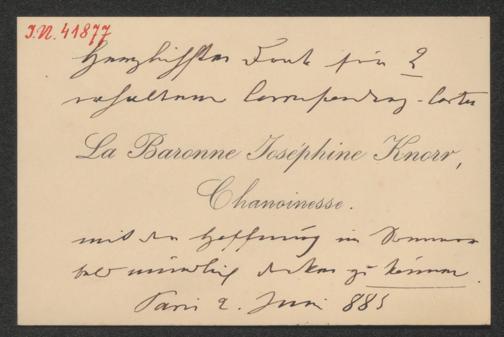 J.N. 41877
Herzlichsten Dank für 2
erhaltene Correspondenz-Carten
La Baronne Joséphine Knorr,
Chanoinesse.
mit der Hoffnung im Sommer
bald mündlich danken zu können.
Paris 2. Juni 885